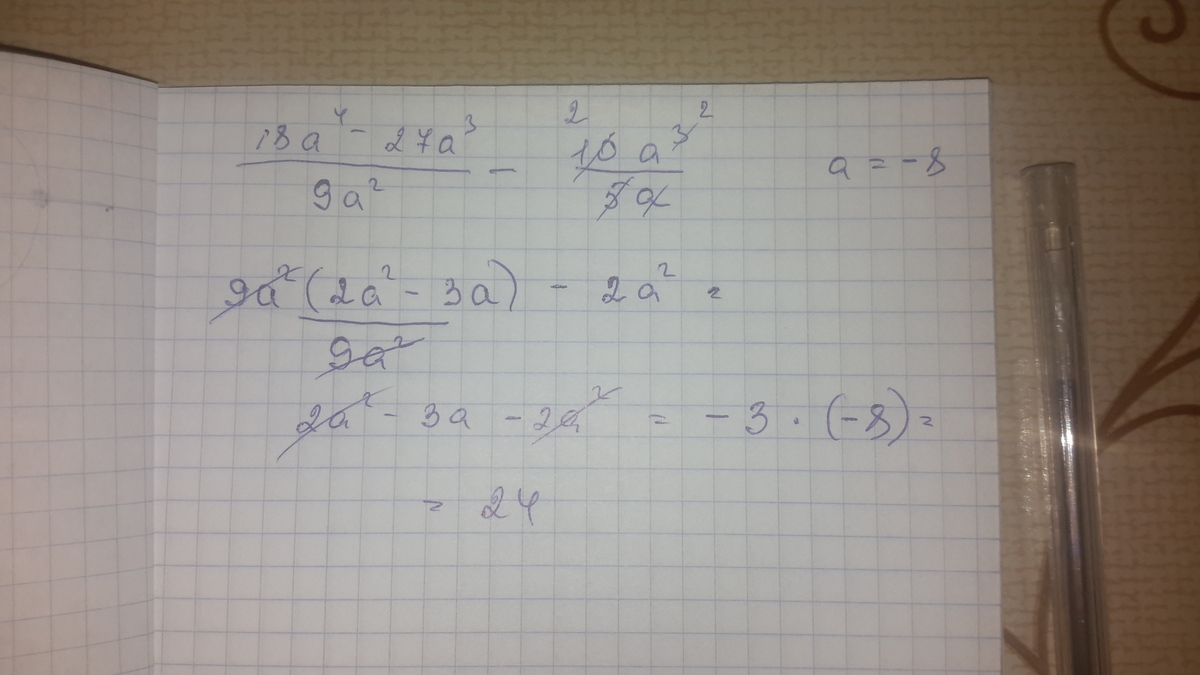 (18a⁴ - 27a³)/(9a²) - (10a³)/(5a) 2 2 a = -8
(9a²(2a² - 3a))/(9a²) - 2a² =
2a² - 3a - 2a² = -3 · (-8) =
= 24